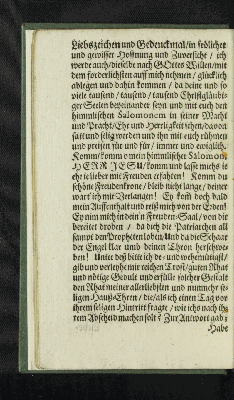 Liebszeichen und Gedenckmal/in frölicher
und gewisser Hoffnung und Zuversicht / ich
werde auch/dieselbe nach GOttes Willen/mit
dem forderlichsten auff mich nehmen / glücklich
ablegen und dahin kommen / da deine und so
viele tausend / tausend / tausend Christgläubi-
ger Seelen beyeinander seyn und mit euch den
himmlischen Salomonem in seiner Macht
und Pracht/Ehr und Herrligkeit sehen/davon
satt und selig werden und ihn mit euch rühmen
und preisen für und für / immer und ewiglich.
Komm/komm o mein himmlischer Salomon,
HERR JESU/komm und lasse mich es
ehe je lieber mit Freuden erfahren! Komm du
schöne Freudenkrone / bleib nicht lange / deiner
wart ich mit Verlangen! Ey komm doch bald
mein Auffenthalt und reiß mich von der Erden!
Ey nim mich in dein'n Freuden-Saal/von dir
bereitet droben / da dich die Patriarchen all
sampt den Propheten loben/Und da die Schaar
der Engel klar umb deinen Thron herschwe-
ben! Unter deß bitte ich de- und wehemütigst/
gib und verleyhe mir reichen Trost/guten Rhat
und nötige Gedult und erfülle solcher Gestalt
den Rhat meiner allerliebsten und nunmehr se-
ligen Hauß-Ehren / die/als ich einen Tag vor
ihrem seligen Hintritt fragte / wie ichs nach ih-
rem Abscheid machen solt? Zur Antwort gab:
Habe